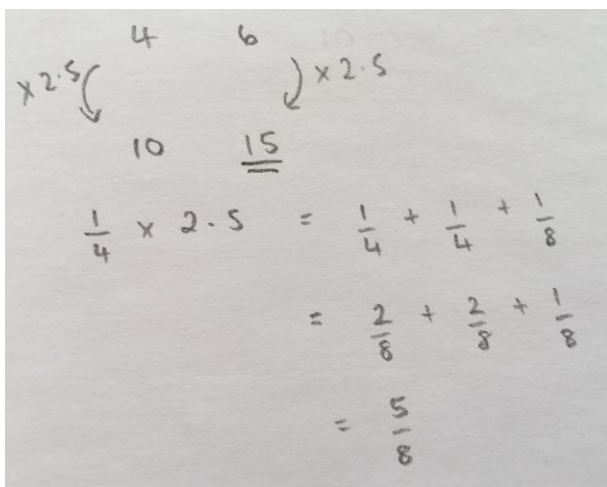 4 6
×2.5 ×2.5
10 15
1/4 × 2.5 = 1/4 + 1/4 + 1/8
= 2/8 + 2/8 + 1/8
= 5/8